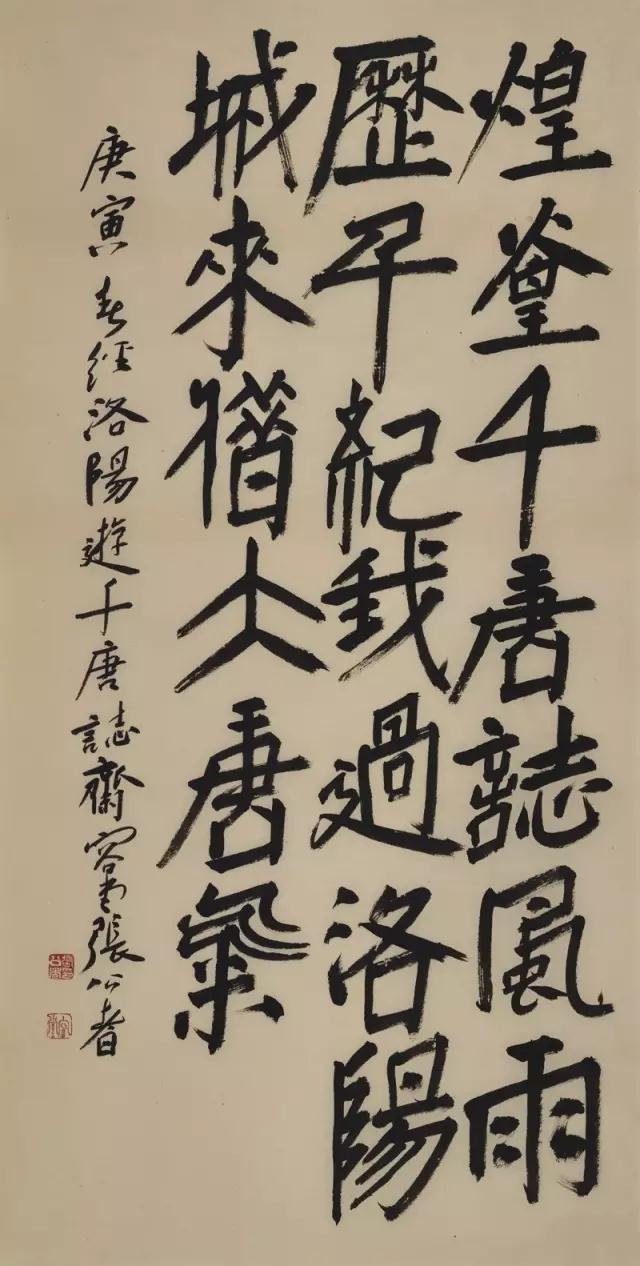 煌煌千唐誌風雨
歷千紀我過洛陽
城來借大唐氣
庚寅春經洛陽遊千唐誌齋容堂張公者